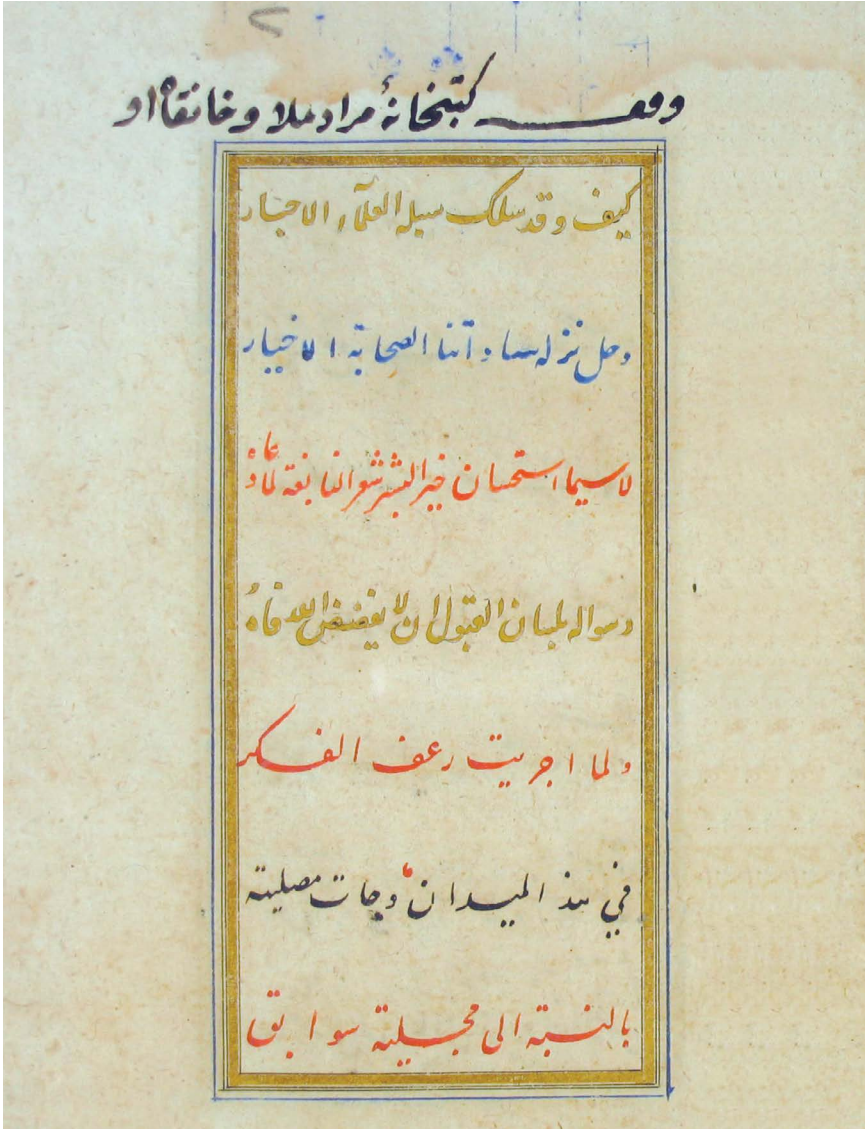 وقف كتبخانهٔ مراد ملا و خانقاه او
كيف و قد سلك سبله العلماء الاحبار
و حل نزله ساداتنا الصحابة الاخيار
لا سيما استحسان خير البشر شعر النابغة لما دعاه
و سواله بلسان القبول ان لا يفضض الله فاه
و لما اجريت رعف الفكر
في هذ الميدان وجات مصلية
بالنسبة الى مجلية سوابق